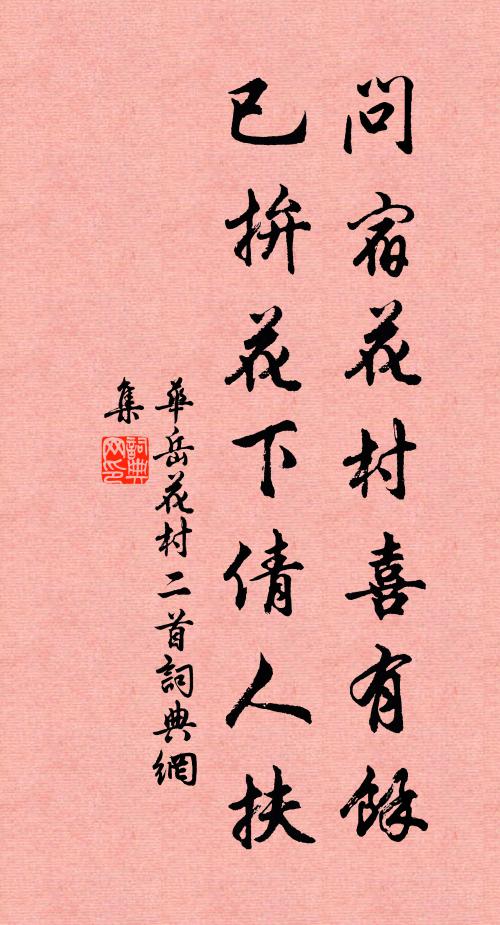 問宿花村喜有餘
已拚花下倩人扶
華岳花村二首詞典網
集
詞典
网印